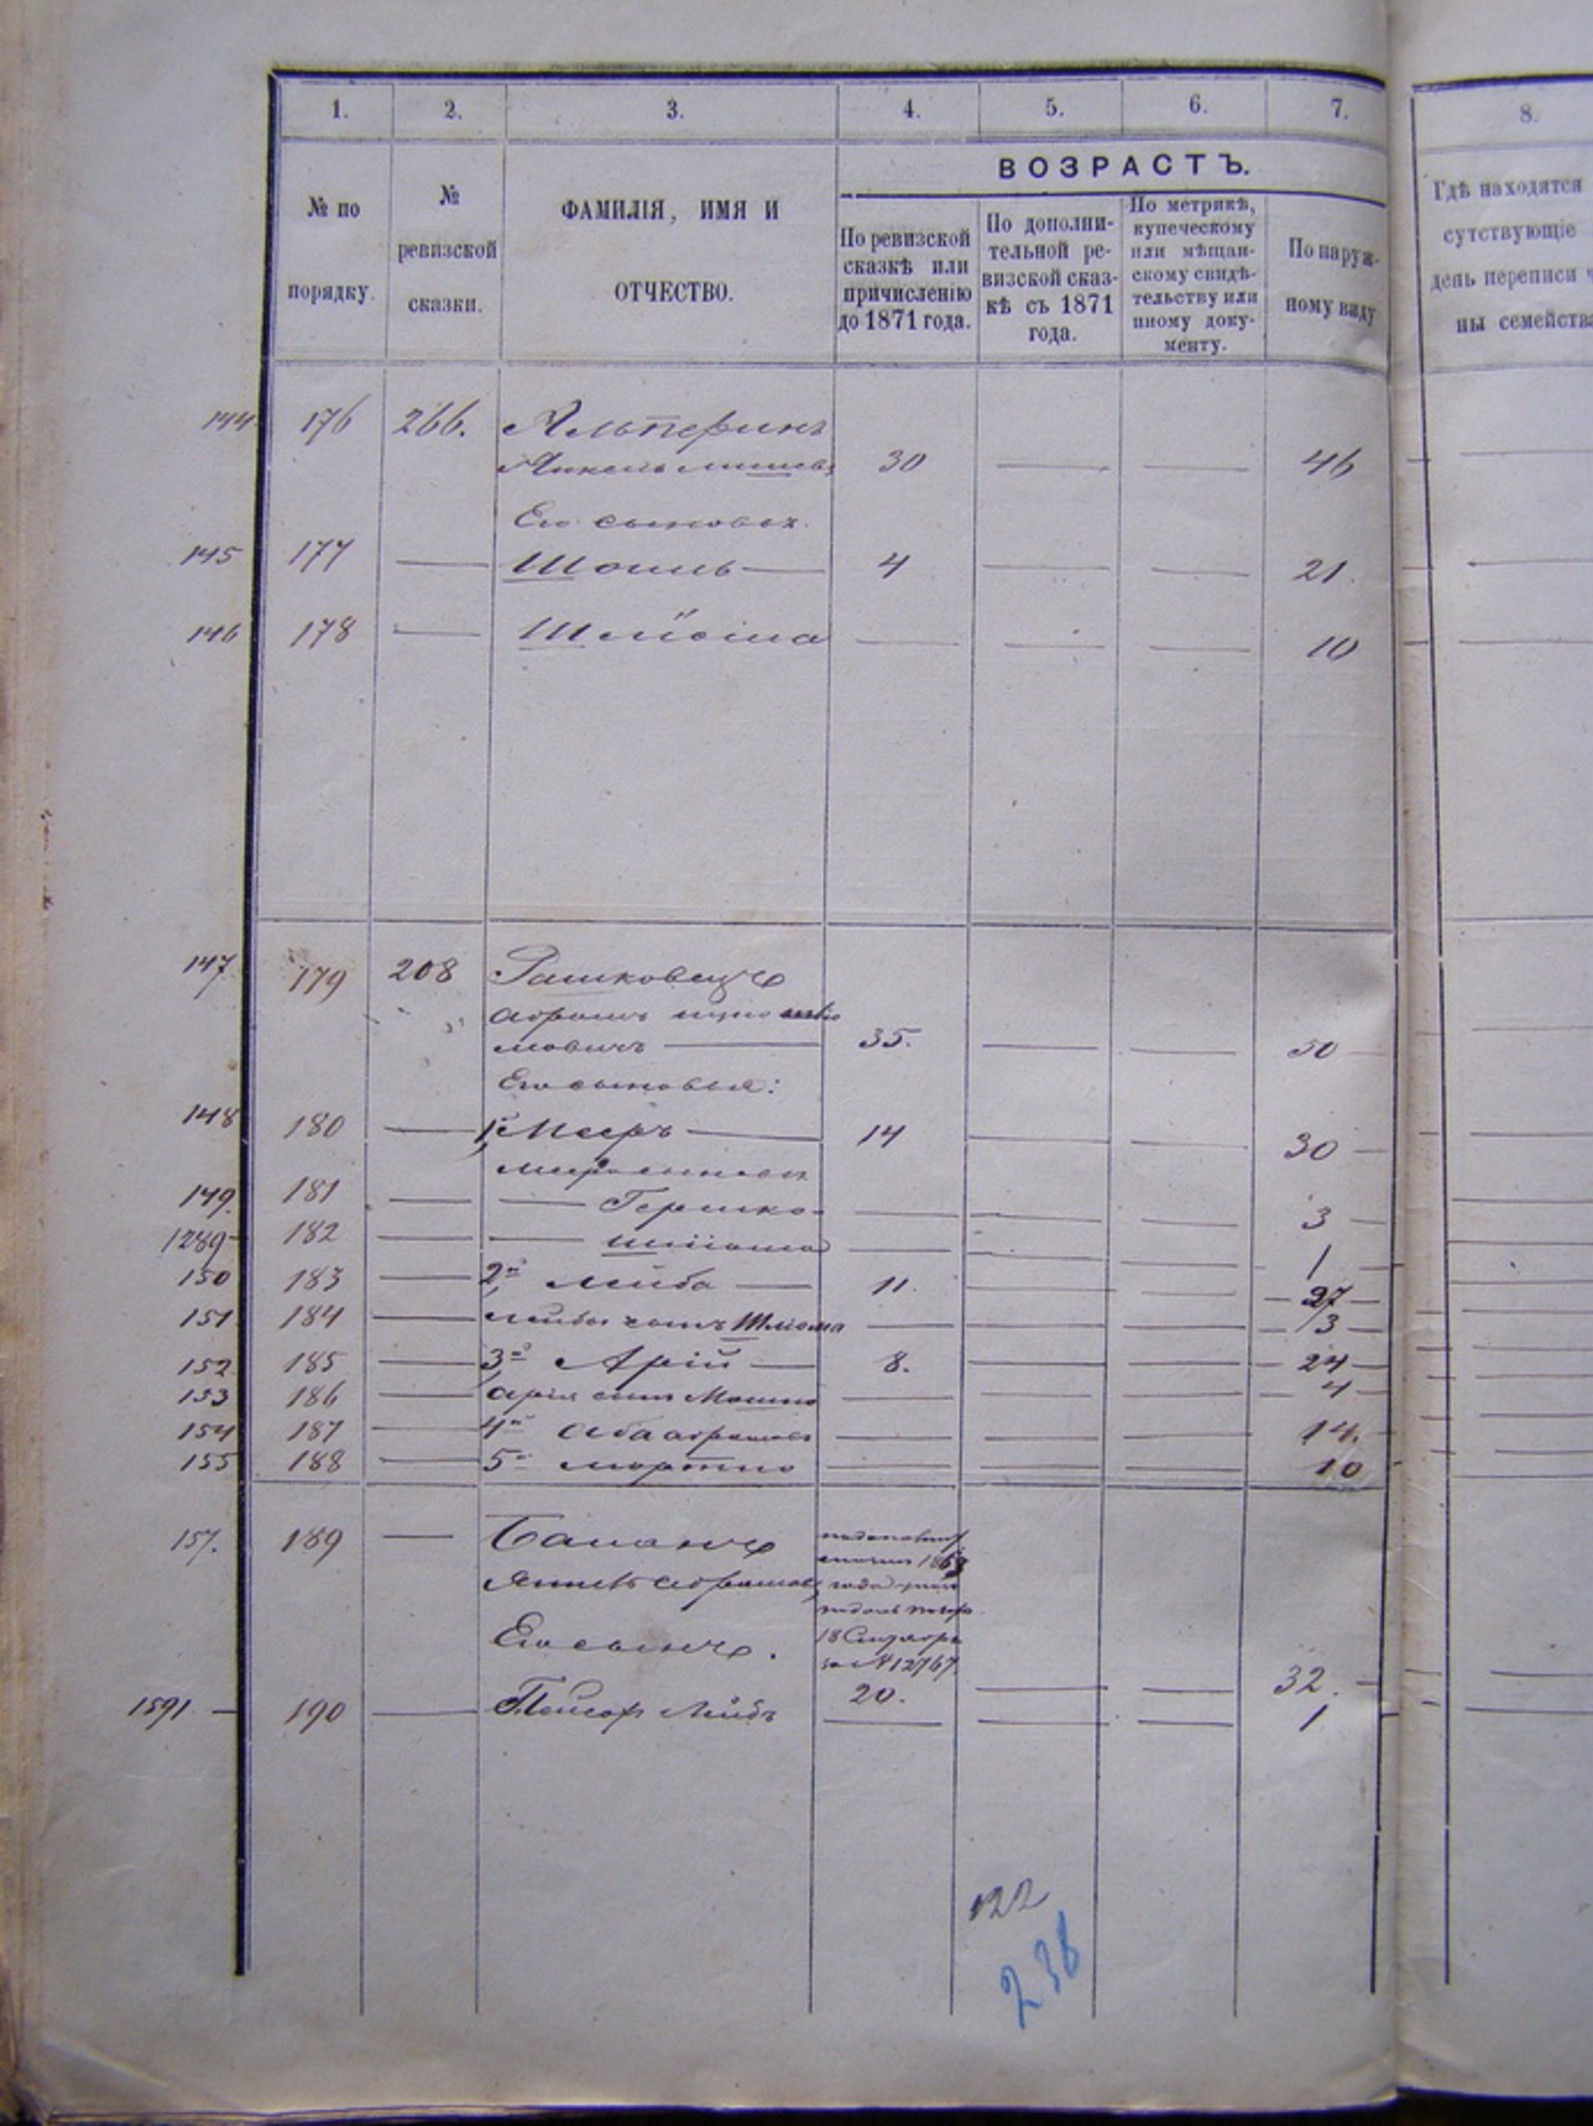 1. 2. 3. 4. 5. 6. 7. 8.
ВОЗРАСТЪ.
№ по
порядку.
№
ревизской
сказки.
ФАМИЛІЯ, ИМЯ И
ОТЧЕСТВО.
По ревизской
сказкѣ или
причисленію
до 1871 года.
По дополни-
тельной ре-
визской сказ-
кѣ съ 1871
года.
По метрикѣ,
купеческому
или мѣщан-
скому свидѣ-
тельству или
иному доку-
менту.
По наруж-
ному виду
Гдѣ находятся
сутствующіе
день переписи ч
ны семейства
144 176 266. Альперинъ
30 46
Его сыновья
145 177 Шоиль 4 21.
146 178 Шлйома 10
147 179 208 Рашковецъ
Абрамъ
мовичъ 35. 50
Его сыновья:
148 180 1й Мееръ 14 30
Меера сыновья
149. 181 Гершко 3
1289 182 Шліома 1
150 183 2й Лейба 11. 27
151 184 Лейбы сынъ Шліома 3
152 185 3й Арій 8. 24
153 186 Арія сынъ Мошко 4
154 187 4й Аба Абрамовъ 14.
155 188 5й Мортко 10
157. 189
1868
года
18 Сентября
за № 12767
Его сынъ.
20. 32.
1591 190 Лейбъ 1
122
238